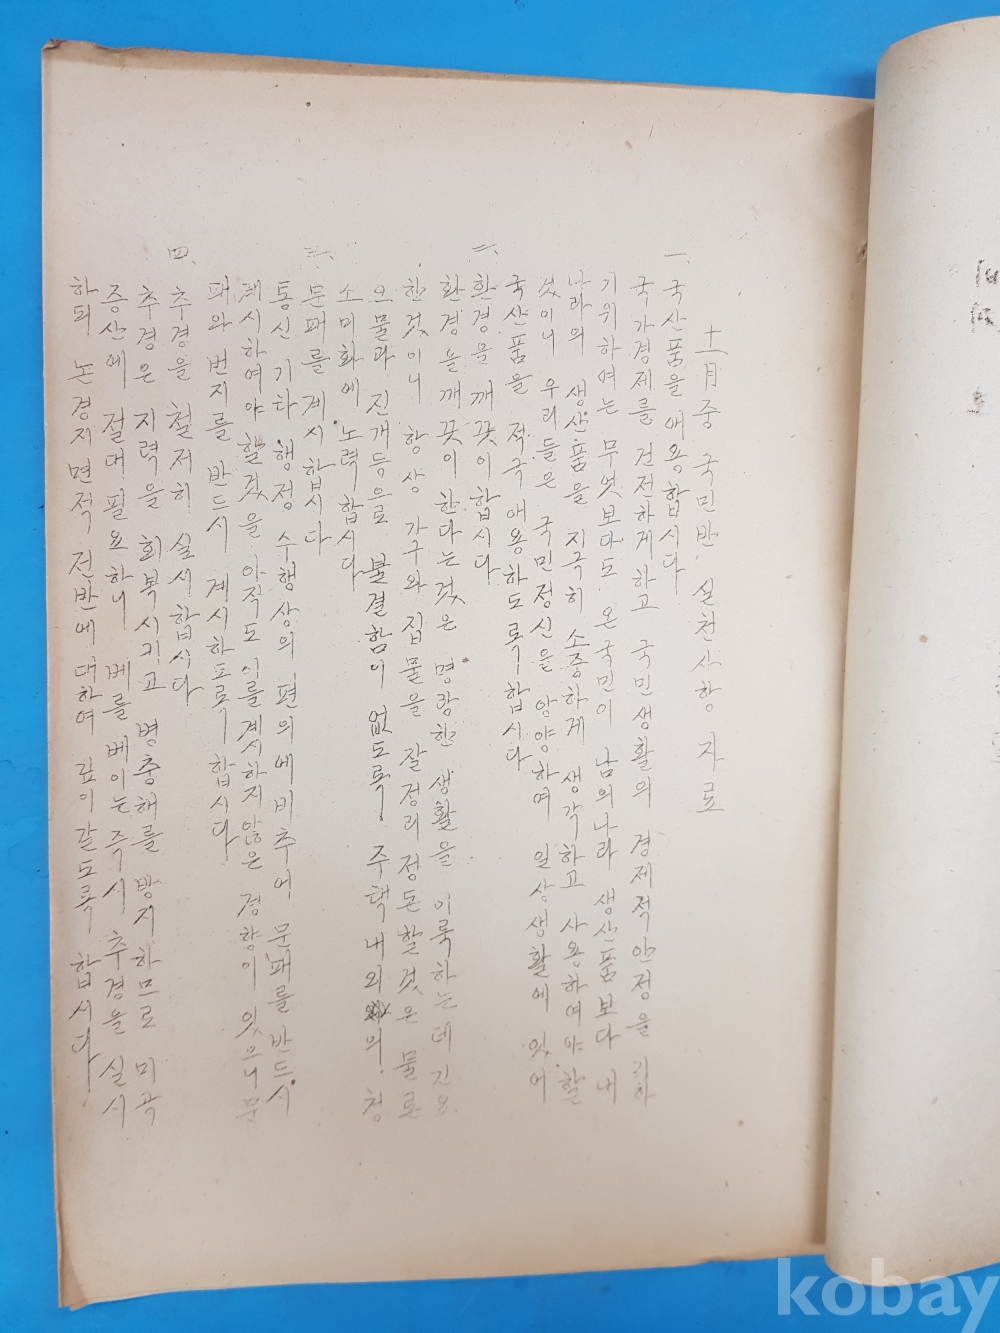 十一月중 국민반 실천사항 자료
一. 국산품을 애용합시다
국가경제를 건전하게하고 국민생활의 경제적안정을 기하
기위하여는 무엇보다도 온국민이 남의나라 생산품보다 내
나라의 생산품을 지극히 소중하게 생각하고 사용하여야할
것이니 우리들은 국민정신을 앙양하여 일상생활에 있어
국산품을 적극 애용하도록 합시다
二. 환경을 깨끗이 합시다
환경을 깨끗이 한다는것은 명랑한 생활을 이룩하는데 긴요
한것이니 항상 가구와 집물을 잘정리 정돈할것은 물론
으물과 진개등으로 불결함이 없도록 주택내외의 청
소미화에 노력합시다
三. 문패를 계시합시다
통신 기타 행정 수행상의 편의에비추어 문패를 반드시
계시하여야 할것을 아직도 이를계시하지 않은 경향이 있으니 문
패와 번지를 반드시 계시하도록 합시다
四. 추경을 철저히 실시합시다
추경은 지력을 회복시키고 병충해를 방지하므로 미곡
증산에 절대필요하니 벼를베이는즉시 추경을 실시
하되 논경지 면적 전반에 대하여 깊이 갈도록 합시다
kobay